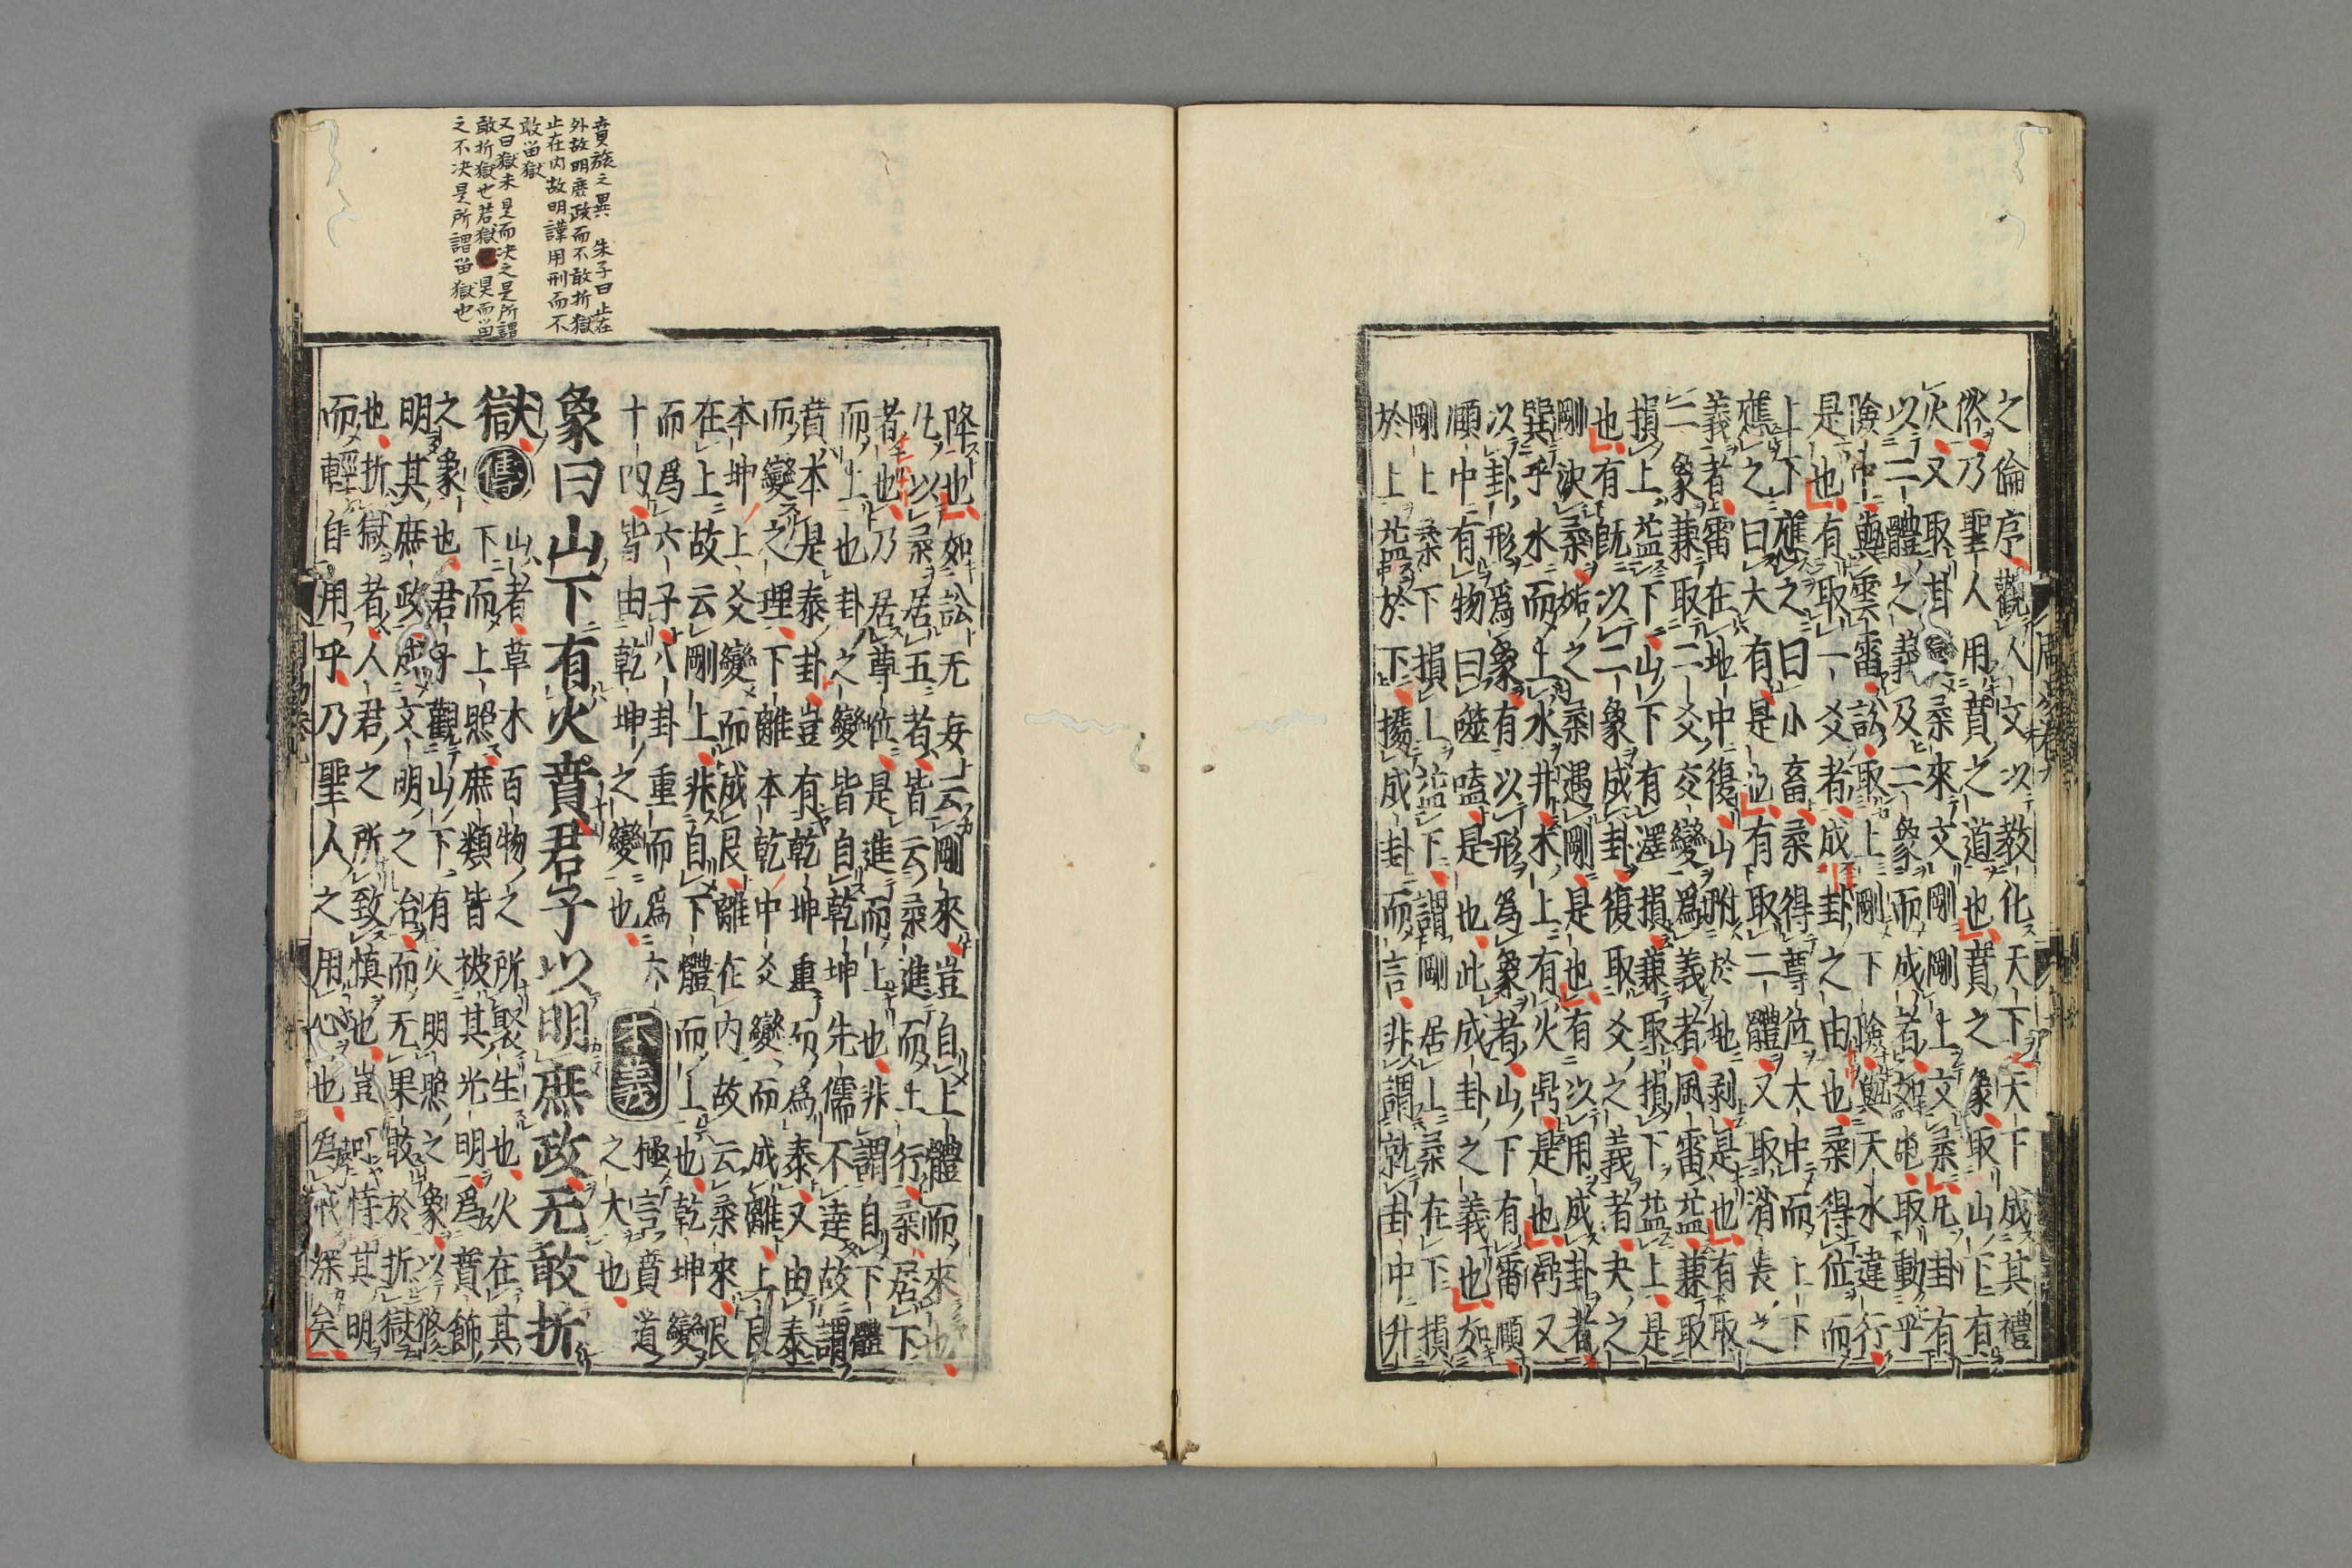 之倫序觀人文以教化天下天下成其禮
俗乃聖人用賁之道也賁之象取山下有
火又取卦變柔來文剛剛上文柔凡卦有
以二體之義及二象而成者如屯取動乎
險中與雲雷訟取上剛下險與天水違行
是也有取一爻者成卦之由也柔得位而
上下應之曰小畜柔得尊位大中而上下
應之曰大有是也有取二體又取消長之
義者雷在地中復山附於地剝是也有取
二象兼取二爻交變爲義者風雷益兼取
損上益下山下有澤損兼取損下益上是
也有既以二象成卦復取爻之義者夬之
剛決柔姤之柔遇剛是也有以用成卦者
巽乎水而上水井木上有火鼎是也鼎又
以卦形爲象有以形爲象者山下有雷頤
頤中有物曰噬嗑是也此成卦之義也如
剛上柔下損上益下謂剛居上柔在下損
於上益於下據成卦而言非謂就卦中升
賁旅之異 朱子曰止在
外故明庶政而不敢折獄
止在内故明謹用刑而不
敢畱獄
又曰獄未是而決之是所謂
敢折獄也若獄 具而畱
之不决是所謂畱獄也
降也如訟无妄云剛來豈自上體而來也
凡以柔居五者皆云柔進而上行柔居下
者也乃居尊位是進而上也非謂自下體
而上也卦之變皆自乾坤先儒不達故謂
賁本是泰卦豈有乾坤重而爲泰又由泰
而變之理下離本乾中爻變而成離上艮
本坤上爻變而成艮離在内故云柔來艮
在上故云剛上非自下體而上也乾坤變
而爲六子八卦重而爲六
十四皆由乾坤之變也
本義
極言賁道
之大也
象曰山下有火賁君子以明庶政无敢折
獄傳
山者草木百物之所聚生也火在其
下而上照庶類皆被其光明爲賁飾
之象也君子觀山下有火明照之象以修
明其庶政成文明之治而无果敢於折獄
也折獄者人君之所致慎也豈可恃其明
而輕自用乎乃聖人之用心也爲戒深矣